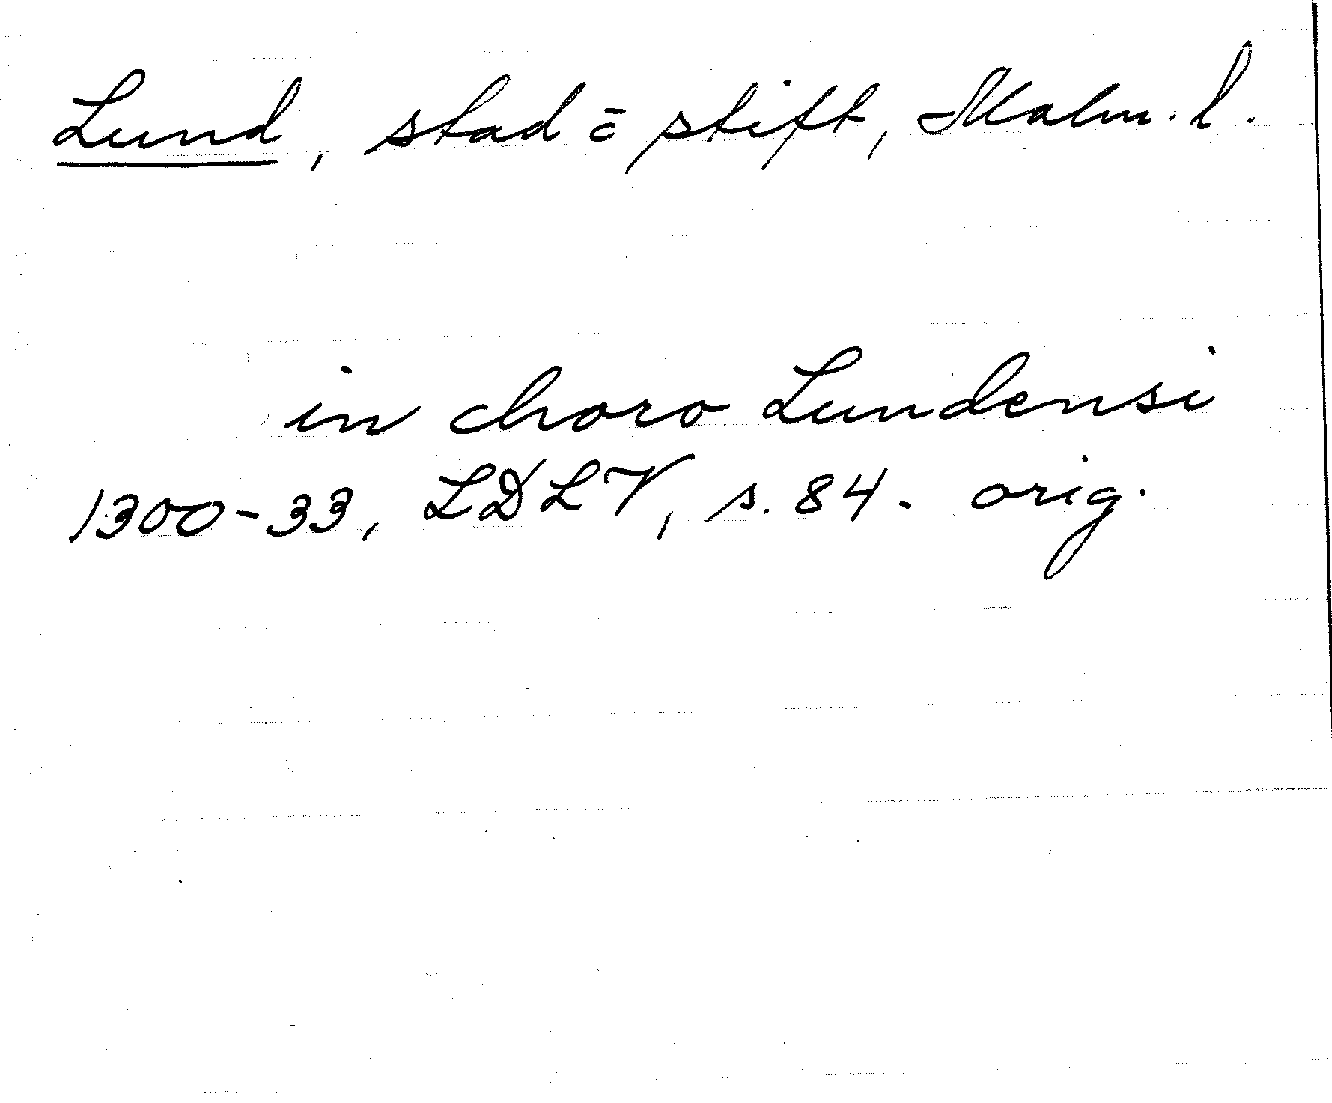 Lund, stad o stift, Malm. l.
in choro Lundensi
1300-33, LDLV, s. 84. orig.